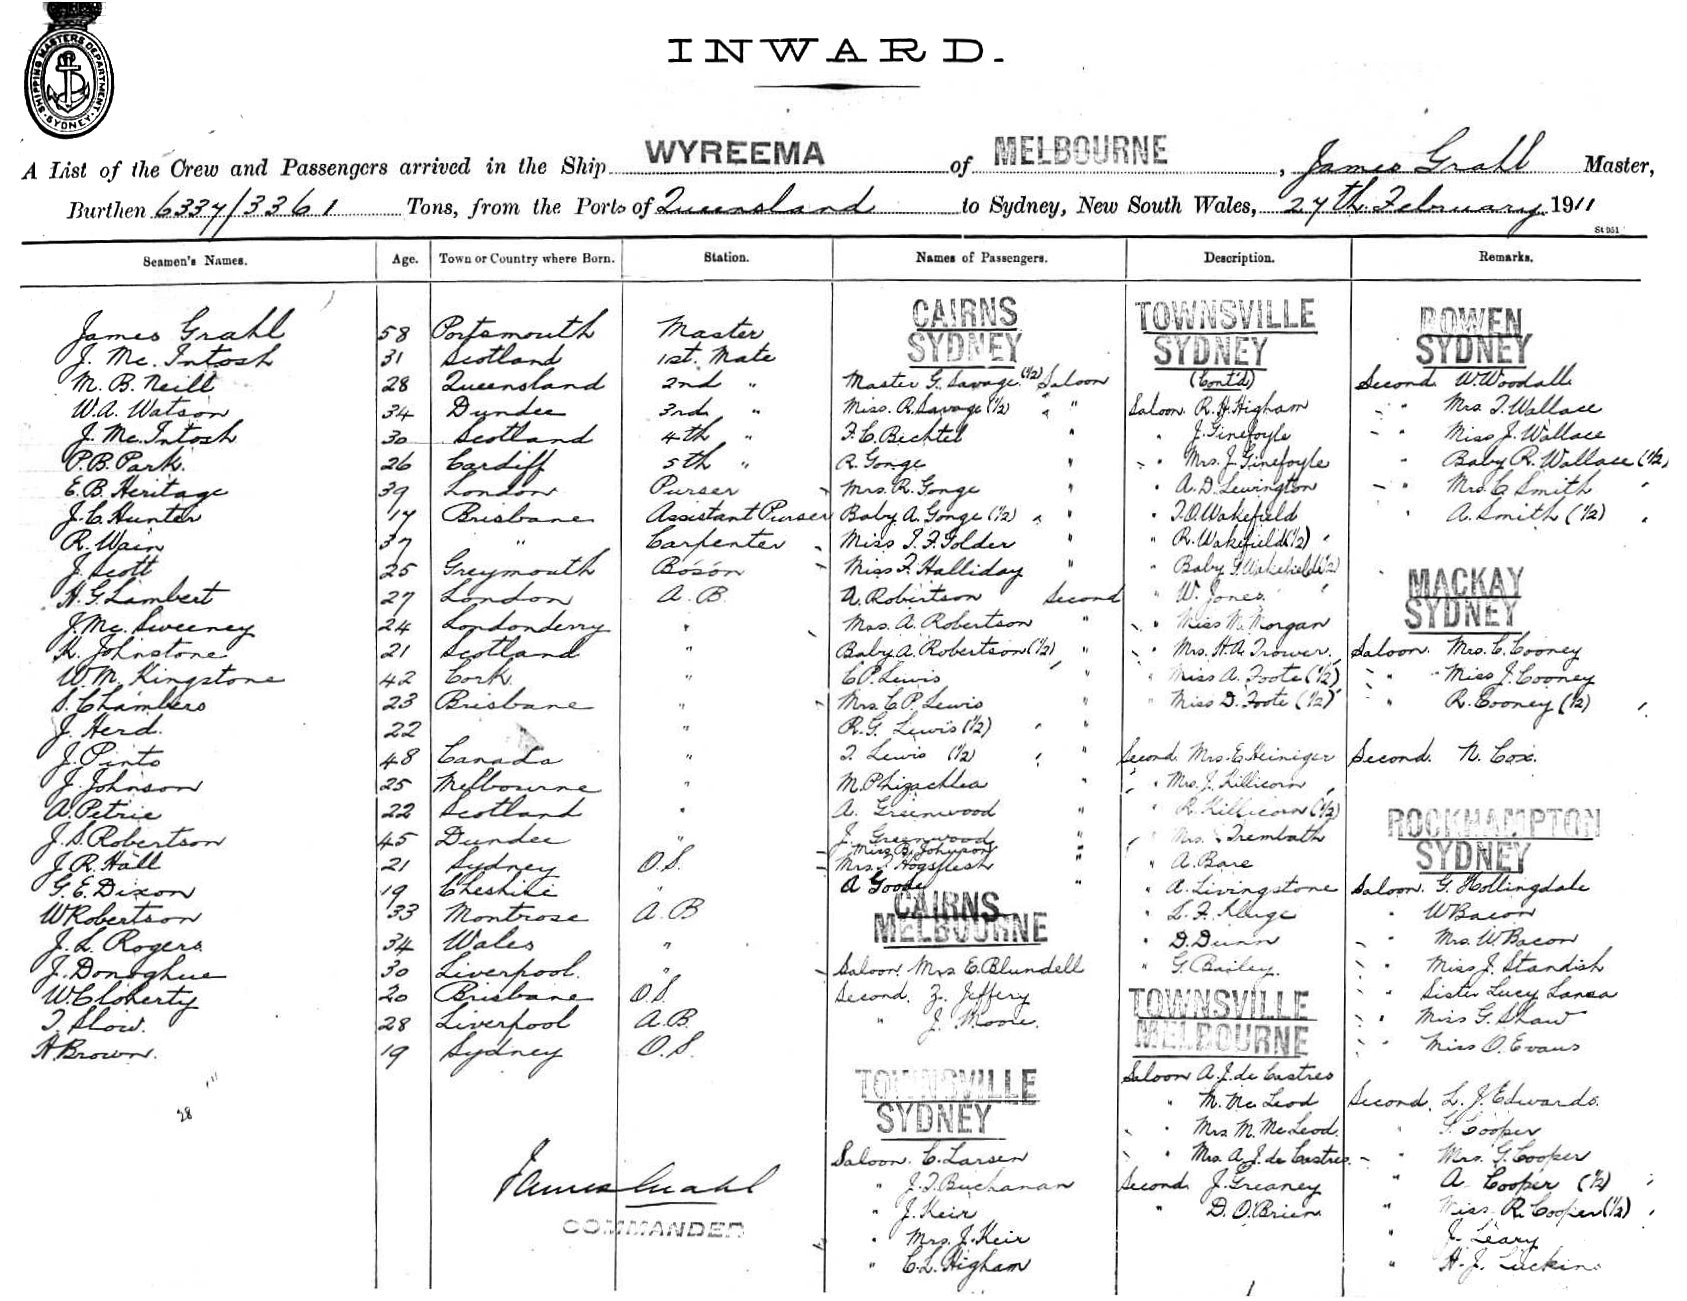 SHIPPING MASTERS DEPARTMENT
SYDNEY
INWARD.
A List of the Crew and Passengers arrived in the Ship WYREEMA of MELBOURNE, James Grahl Master,
Burthen 6337/3361 Tons, from the Ports of Queensland to Sydney, New South Wales, 27th February 1911
St 951
Seamen's Names. Age. Town or Country where Born. Station. Names of Passengers. Description. Remarks.
James Grahl 58 Portsmouth Master
J. Mc.Intosh 31 Scotland 1st. Mate
M.B. Neill 28 Queensland 2nd "
W.A. Watson 34 Dundee 3rd "
J. Mc.Intosh 30 Scotland 4th "
P.B. Park. 26 Cardiff 5th "
E.B. Heritage 39 London Purser
J.C. Hunter 17 Brisbane Assistant Purser
R. Wain 37 " Carpenter
J. Scott 25 Greymouth Bosón
H.G. Lambert 27 London A.B.
J. Mc.Sweeney 24 Londonderry "
K. Johnstone 21 Scotland "
W.M. Kingstone 42 Cork "
S. Chambers 23 Brisbane "
J. Herd. 22 "
J. Pinto 48 Canada "
J. Johnson 25 Melbourne "
A. Petrie 22 Scotland "
J.S. Robertson 45 Dundee "
J.R. Hall 21 Sydney O.S.
G.E. Dixon 19 Cheshire "
W Robertson 33 Montrose A.B
J.L. Rogers 34 Wales "
J. Donoghue 30 Liverpool. "
W. Cloherty 20 Brisbane O.S.
T. Slow. 28 Liverpool A.B.
H Brown. 19 Sydney O.S.
28
James Grahl
COMMANDER
CAIRNS
SYDNEY
Master G. Savage (1/2) Saloon
Miss. R. Savage (1/2) " "
F.C. Bechtel "
R. Gonge "
Mrs. R. Gonge "
Baby A. Gonge (1/2) " "
Miss I.F. Golder "
Miss F. Halliday "
A. Robertson Second
Mrs. A. Robertson "
Baby A. Robertson (1/2) "
C.P. Lewis "
Mrs C.P. Lewis "
R.G. Lewis (1/2) "
T. Lewis (1/2) "
A. Greenwood "
J. Greenwood "
Miss B. Johnson "
Mrs Hogsflesh "
A Goose "
CAIRNS
MELBOURNE
Saloon. Mrs E. Blundell
Second. Z. Jeffery
" J. Moore.
TOWNSVILLE
SYDNEY
Saloon. C. Larsen
" J.T. Buchanan
" J. Keir
" Mrs. J. Keir
" C.L. Higham
TOWNSVILLE
SYDNEY
(Cont'd)
Saloon. R.H. Higham
" J. Ginefoyle
" Mrs. J. Ginefoyle
" A.D. Lewington
" T.O. Wakefield
" R. Wakefield (1/2)
" Baby Wakefield (1/2)
" W. Jones.
" Miss M. Morgan
" Mrs. H.A. Trower.
" Miss A. Foote (1/2)
" Miss D. Foote (1/2)
Second. Mrs. E. Heiniger
" Mrs. J. Killicorn
" R. Killicorn (1/2)
" Mrs. Trembath
" A. Bare
" A. Livingstone
" L.F. Kluge
" D. Dunn
" G. Bailey.
TOWNSVILLE
MELBOURNE
Saloon A.J. de Castres
" M. McLeod
" Mrs M. McLeod.
" Mrs. A.J. de Castres
Second. J. Greaney
" D. O'Brien
BOWEN
SYDNEY
Second. W. Woodall
" Mrs. T. Wallace
" Miss J. Wallace
" Baby R. Wallace (1/2)
" Mrs. C. Smith
" A. Smith (1/2)
MACKAY
SYDNEY
Saloon. Mrs. C. Cooney
" Miss J. Cooney
" R. Cooney (1/2)
Second. N. Cox.
ROCKHAMPTON
SYDNEY
Saloon. G. Hollingdale
" W Bacon
" Mrs. W. Bacon
" Miss J. Standish
" Sister Lucy
" Miss G. Shaw
" Miss O. Evans
Second. L.J. Edwards.
" G. Cooper
" Mrs. G. Cooper
" A. Cooper (1/2)
" Miss. R. Cooper (1/2)
" J. Leary
" H.J. Luckins